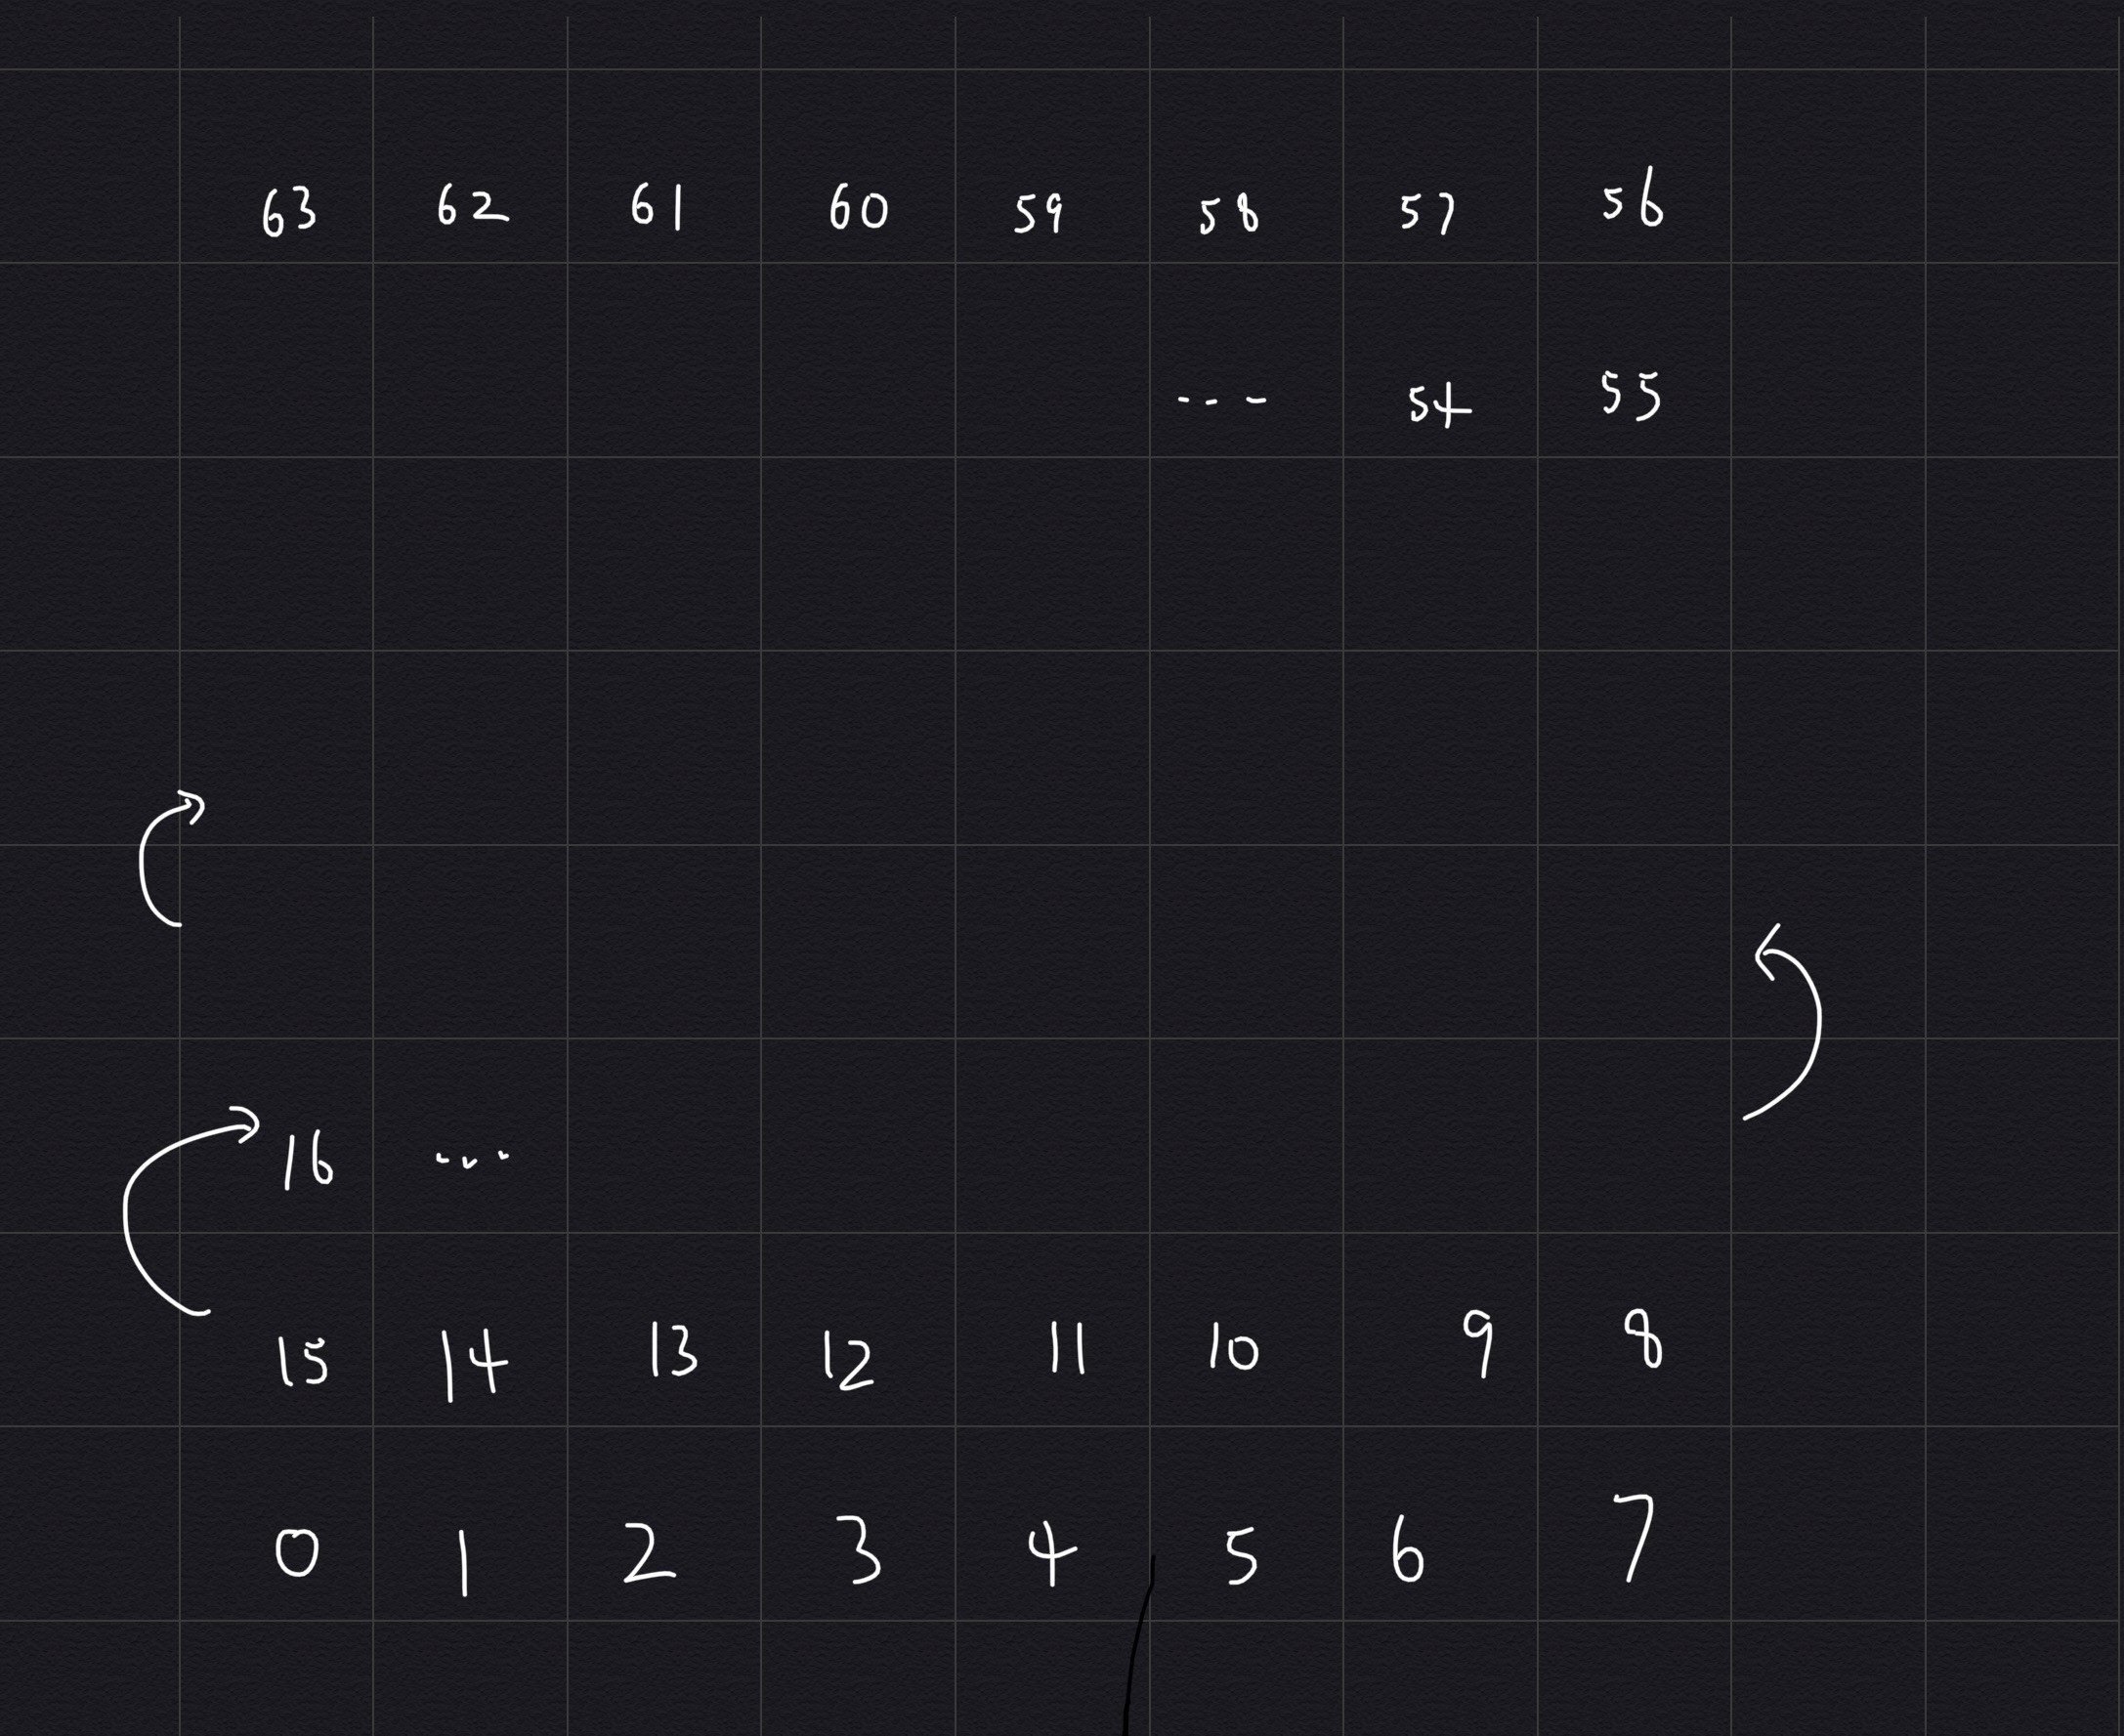 63 62 61 60 59 58 57 56
--- 54 55
16 ...
15 14 13 12 11 10 9 8
0 1 2 3 4 5 6 7